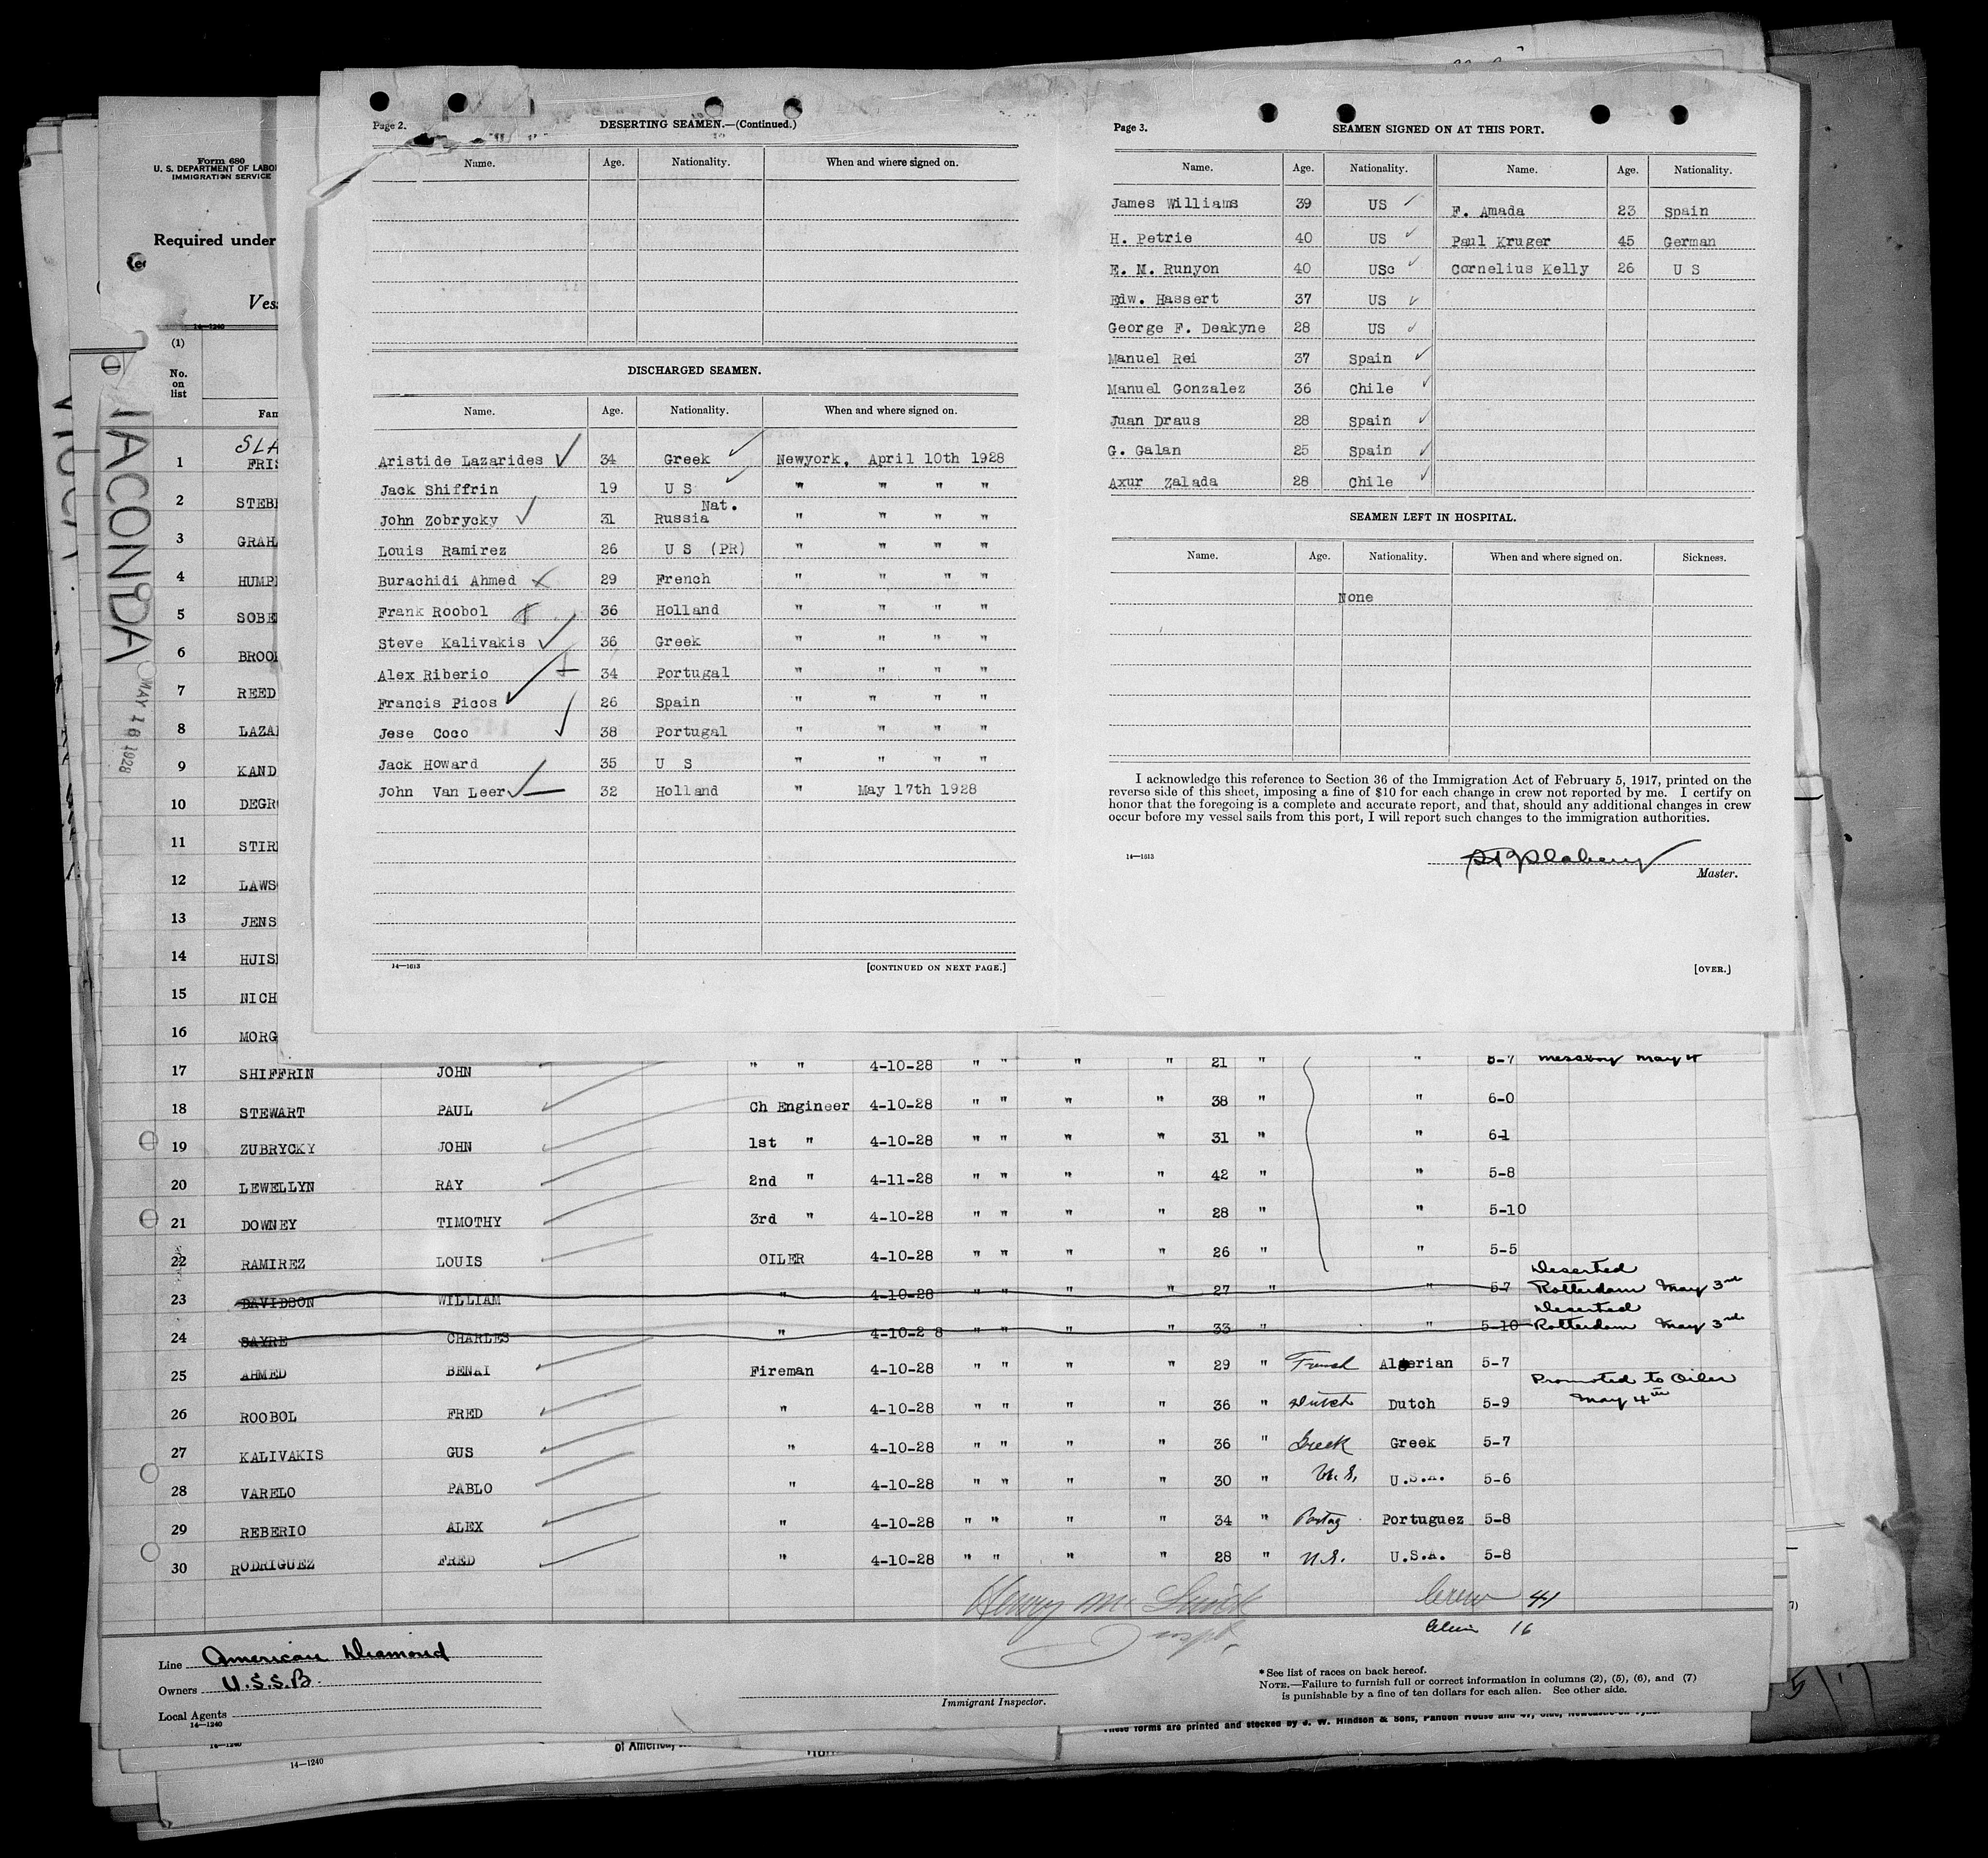 Form 680
U. S. DEPARTMENT OF LABO
IMMIGRATION SERVICE
Required under
Ves
14—1240
(1)
No.
on
list
Fam
JACONDA
MAY 16 1928
SLA
1 FRIS
2 STEB
3 GRAHA
4 HUMP
5 SOBE
6 BROO
7 REED
8 LAZA
9 KAND
10 DEGR
11 STIR
12 LAWS
13 JENS
14 HUIS
15 NICH
16 MORG
Page 2.
DESERTING SEAMEN.—(Continued.)
Name. Age. Nationality. When and where signed on.
DISCHARGED SEAMEN.
Name. Age. Nationality. When and where signed on.
Aristide Lazarides 34 Greek Newyork. April 10th 1928
Jack Shiffrin 19 U S " " " "
Nat.
John Zobrycky 31 Russia " " " "
Louis Ramirez 26 U S (PR) " " " "
Burachidi Ahmed 29 French " " " "
Frank Roobol 36 Holland " " " "
Steve Kalivakis 36 Greek " " " "
Alex Riberio 34 Portugal " " " "
Francis Picos 26 Spain " " " "
Jese Coco 38 Portugal " " " "
Jack Howard 35 U S " " " "
John Van Leer 32 Holland " May 17th 1928
14—1613
[CONTINUED ON NEXT PAGE.]
Page 3.
SEAMEN SIGNED ON AT THIS PORT.
Name. Age. Nationality. Name. Age. Nationality.
James Williams 39 US F. Amada 23 Spain
H. Petrie 40 US Paul Kruger 45 German
E. M. Runyon 40 USc Cornelius Kelly 26 U S
Edw. Hassert 37 US
George F. Deakyne 28 US
Manuel Rei 37 Spain
Manuel Gonzalez 36 Chile
Juan Draus 28 Spain
G. Galan 25 Spain
Axur Zalada 28 Chile
SEAMEN LEFT IN HOSPITAL.
Name. Age. Nationality. When and where signed on. Sickness.
None
I acknowledge this reference to Section 36 of the Immigration Act of February 5, 1917, printed on the
reverse side of this sheet, imposing a fine of $10 for each change in crew not reported by me. I certify on
honor that the foregoing is a complete and accurate report, and that, should any additional changes in crew
occur before my vessel sails from this port, I will report such changes to the immigration authorities.
14—1613
Master.
[OVER.]
17 SHIFFRIN JOHN " " 4-10-28 " " " " 21 " " 5-7 messboy May 4
18 STEWART PAUL Ch Engineer 4-10-28 " " " " 38 " " 6-0
19 ZUBRYCKY JOHN 1st " 4-10-28 " " " " 31 " " 6-1
20 LEWELLYN RAY 2nd " 4-11-28 " " " " 42 " " 5-8
21 DOWNEY TIMOTHY 3rd " 4-10-28 " " " " 28 " " 5-10
22 RAMIREZ LOUIS OILER 4-10-28 " " " " 26 " " 5-5
Deserted
23 DAVIDSON WILLIAM " 4-10-28 " " " " 27 " " 5-7 Rotterdam May 3rd
Deserted
24 SAYRE CHARLES " 4-10-2 8 " " " " 33 " " 5-10 Rotterdam May 3rd
25 AHMED BENAI Fireman 4-10-28 " " " " 29 " French Algerian 5-7
Promoted to Oiler
May 4th
26 ROOBOL FRED " 4-10-28 " " " " 36 " Dutch Dutch 5-9
27 KALIVAKIS GUS " 4-10-28 " " " " 36 " Greek Greek 5-7
28 VARELO PABLO " 4-10-28 " " " " 30 " U.S. U.S.A. 5-6
29 REBERIO ALEX " 4-10-28 " " " " 34 " Portug Portuguez 5-8
30 RODRIGUEZ FRED " 4-10-28 " " " " 28 " U.S. U.S.A. 5-8
Henry M.
Inspt.
Crew 41
16
Line American Diamond
Owners U.S.S.B.
Local Agents
14—1240
Immigrant Inspector.
*See list of races on back hereof.
NOTE.—Failure to furnish full or correct information in columns (2), (5), (6), and (7)
is punishable by a fine of ten dollars for each alien. See other side.
14—1240
14—1240
of America,
These forms are printed and stocked by J. W. Hindson & Sons,